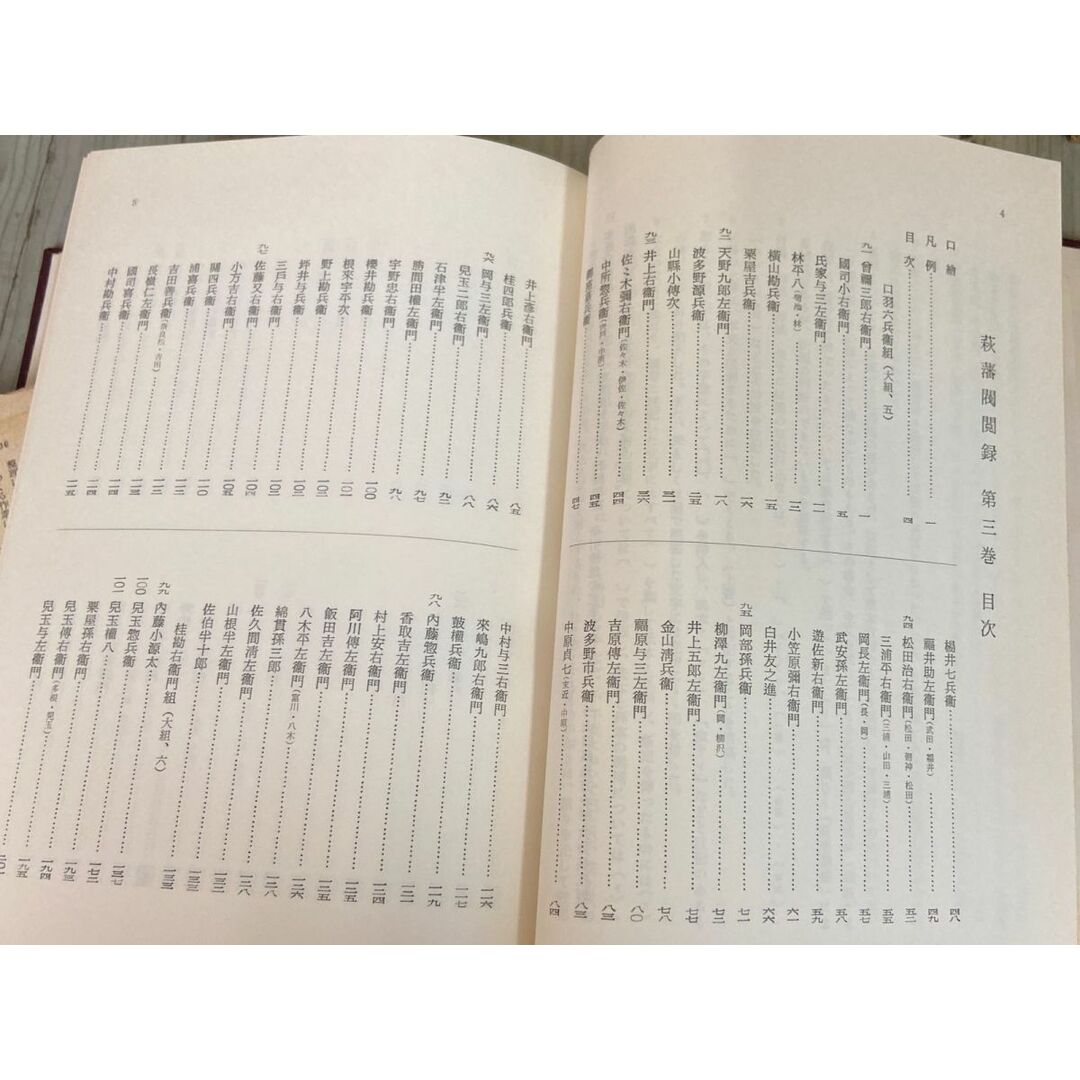 4
萩藩閥閲録　第三巻　目次
口繪
凡例……一
目次……四
口羽六兵衞組（大組、五）
九一 曾禰三郎右衞門……一
國司小右衞門……五
氏家与三左衞門……一一
林平八……一三
横山勘兵衞……一五
粟屋吉兵衞……一六
九二 天野九郎左衞門……一八
波多野源兵衞……二五
山縣小傳次……三一
九三 井上右衞門……三六
佐々木彌右衞門（佐々木・伊佐・佐々木）……四四
中所惣兵衞……四五
楊井七兵衞……四八
福井助左衞門（武田・福井）……四九
九四 松田治右衞門……五二
三浦平右衞門（三浦・山田・三浦）……五五
岡長左衞門（長・岡）……五七
武安孫左衞門……五八
遊佐新右衞門……五九
小笠原彌右衞門……六一
白井友之進……六六
九五 岡部孫兵衞……七一
柳澤九左衞門（岡・柳沢）……七二
井上五郎左衞門……七七
金山清兵衞……七八
福原与三左衞門……八〇
吉原傳左衞門……八二
波多野市兵衞……八三
中原貞七（末近・中原）……八四
5
井上彥右衞門……八五
桂四郎兵衞……八六
九六 岡与三左衞門……八八
兒玉二郎右衞門……九二
石津半左衞門……九七
勝間田權左衞門……九七
宇野忠右衞門……九八
櫻井勘兵衞……一〇〇
根來宇平次……一〇一
野上勘兵衞……一〇二
坪井与兵衞……一〇三
三戸与右衞門……一〇三
九七 佐藤又右衞門……一〇四
小方吉右衞門……一〇五
關四兵衞……一一〇
浦喜兵衞……一一二
吉田善兵衞……一一三
長嶺仁左衞門……一一三
國司喜兵衞……一一四
中村勘兵衞……一一五
中村与三右衞門……一一六
來嶋九郎右衞門……一一七
鼓權兵衞……一一九
九八 内藤惣兵衞……一二一
香取吉左衞門……一二四
村上安右衞門……一二五
阿川傳左衞門……一二五
飯田吉左衞門……一二六
八木平左衞門（富川・八木）……一二八
綿貫孫三郎……一二八
佐久間清左衞門……一三一
山根半左衞門……一三二
佐伯半十郎……一三三
桂勘右衞門組（大組、六）
九九 内藤小源太……一三七
一〇〇 兒玉惣兵衞……一七二
一〇一 兒玉權八……一九三
粟屋孫右衞門……一九四
兒玉傳右衞門……一九五
兒玉与左衞門……二〇一